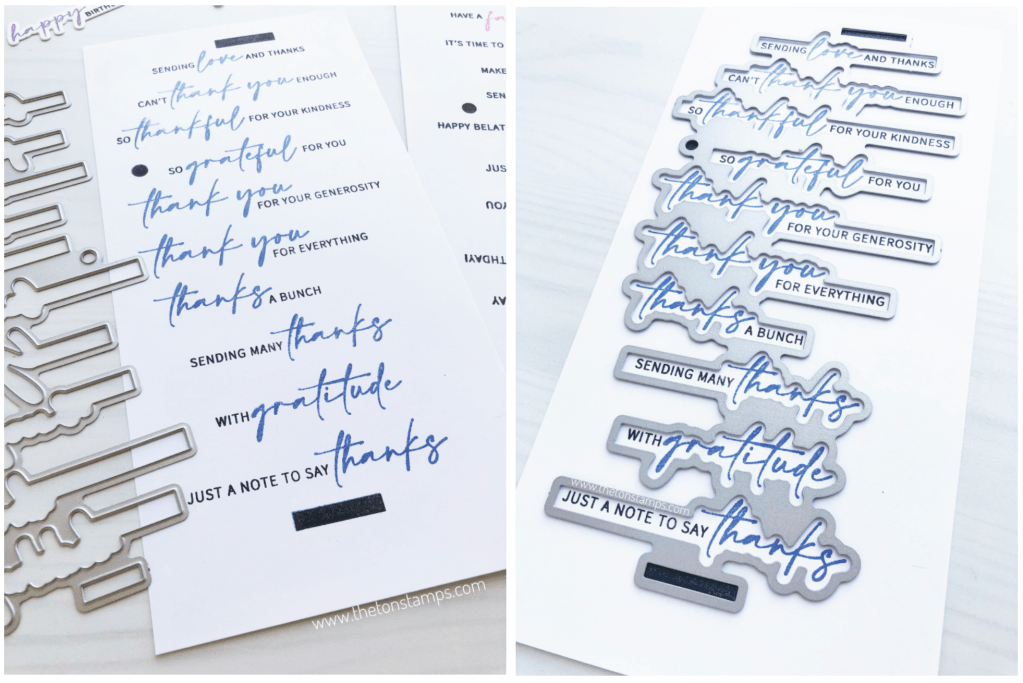 happy
HAVE A
IT'S TIME TO
MAKE
SEN
HAPPY BELAT
JUS
YOU
THDAY!
AY
SENDING love AND THANKS
CAN'T thank you ENOUGH
SO thankful FOR YOUR KINDNESS
SO grateful FOR YOU
thank you FOR YOUR GENEROSITY
thank you FOR EVERYTHING
thanks A BUNCH
SENDING MANY thanks
WITH gratitude
JUST A NOTE TO SAY thanks
www.thetonstamps.com
SENDING love AND THANKS
CAN'T thank you ENOUGH
SO thankful FOR YOUR KINDNESS
SO grateful FOR YOU
thank you FOR YOUR GENEROSITY
thank you FOR EVERYTHING
thanks A BUNCH
SENDING MANY thanks
WITH gratitude
www.thetonstamps.com
JUST A NOTE TO SAY thanks